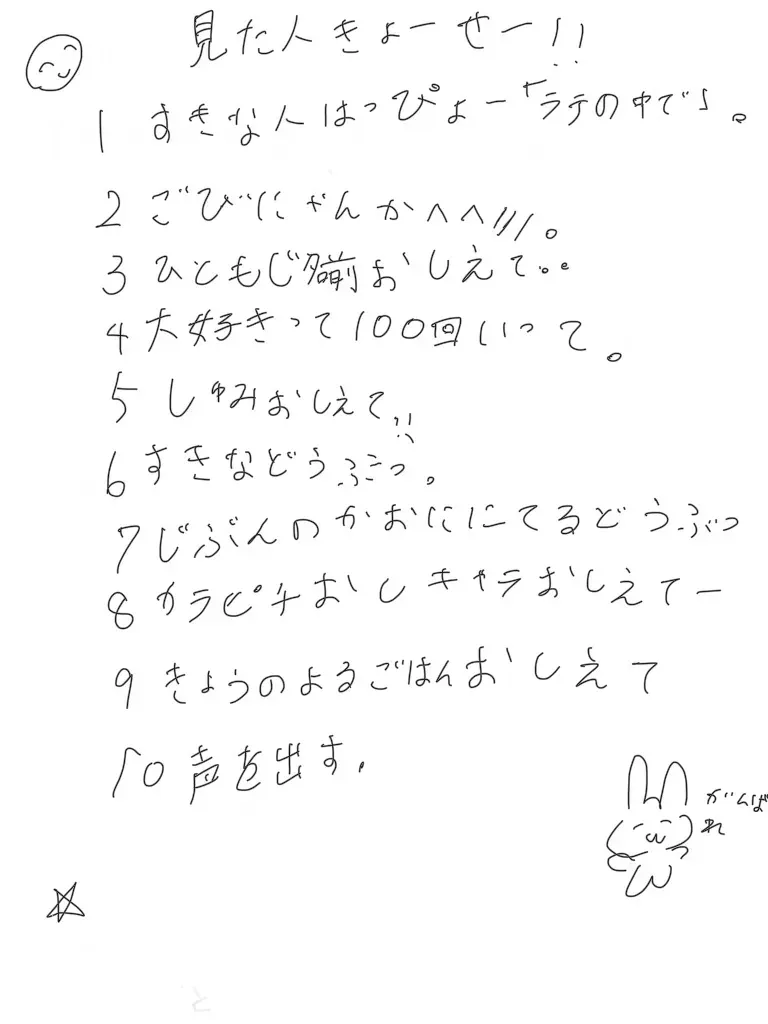 見た人きょーせー!!
1 すきな人はっぴょー「ラテの中で」。
2 ごびにゃんかへへ///。
3 ひともじ名前おしえて。。
4 大好きって100回いって。
5 しゅみおしえて!!
6 すきなどうぶつ。
7 じぶんのかおににてるどうぶつ
8 カラピチおしキャラおしえてー
9 きょうのよるごはんおしえて
10 声を出す.
がんば
れ